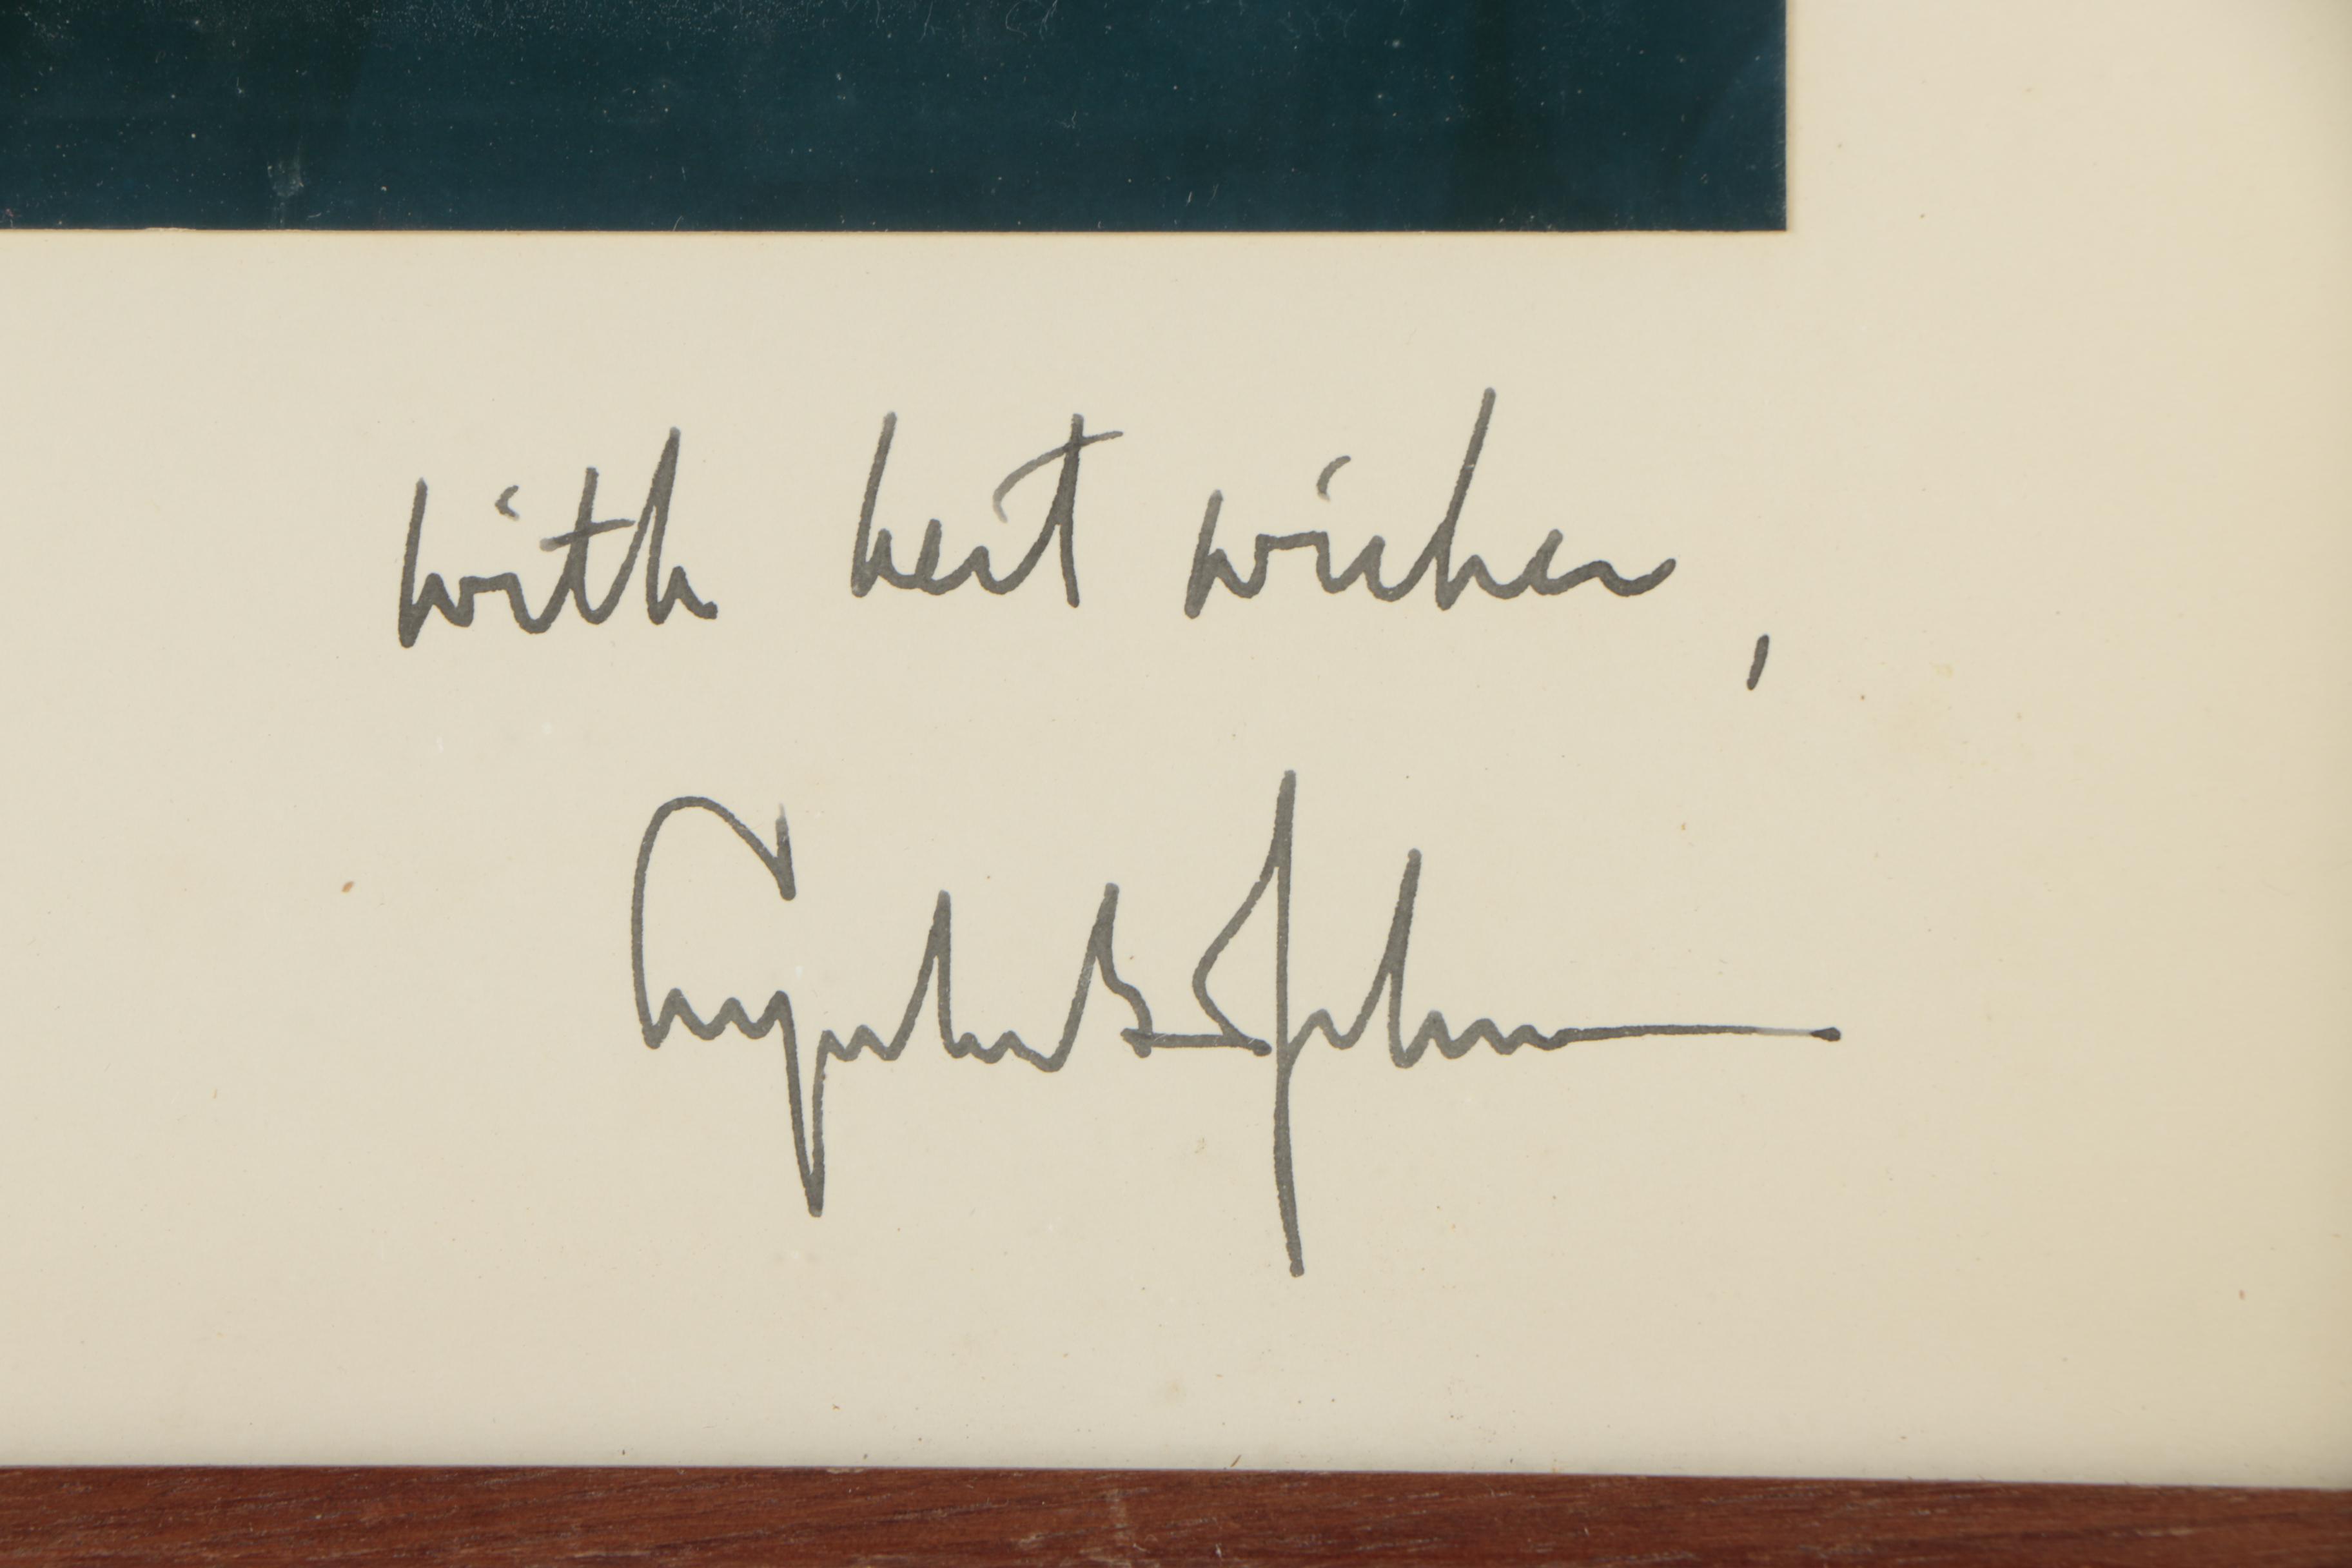 with best wishes,
Lyndon B. Johnson